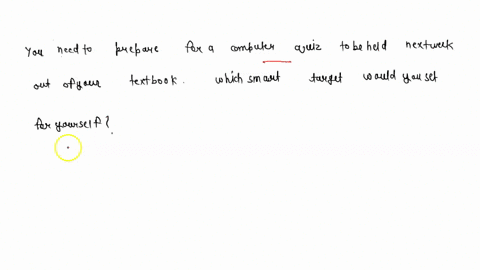 You need to prepare for a computer quiz to be held next week
out of your textbook. which smart target would you set
for yourself?